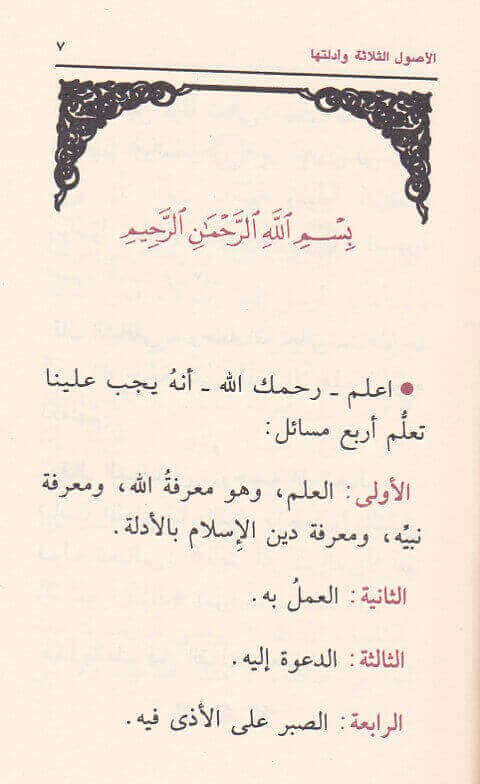 الأصول الثلاثة وأدلتها
٧
بِسْمِ ٱللَّهِ ٱلرَّحْمَٰنِ ٱلرَّحِيمِ
● اعلم ـ رحمك الله ـ أنهُ يجب علينا
تعلُّم أربع مسائل:
الأولى: العلم، وهو معرفةُ الله، ومعرفة
نبيِّه، ومعرفة دين الإِسلام بالأدلة.
الثانية: العملُ به.
الثالثة: الدعوة إليه.
الرابعة: الصبر على الأذى فيه.